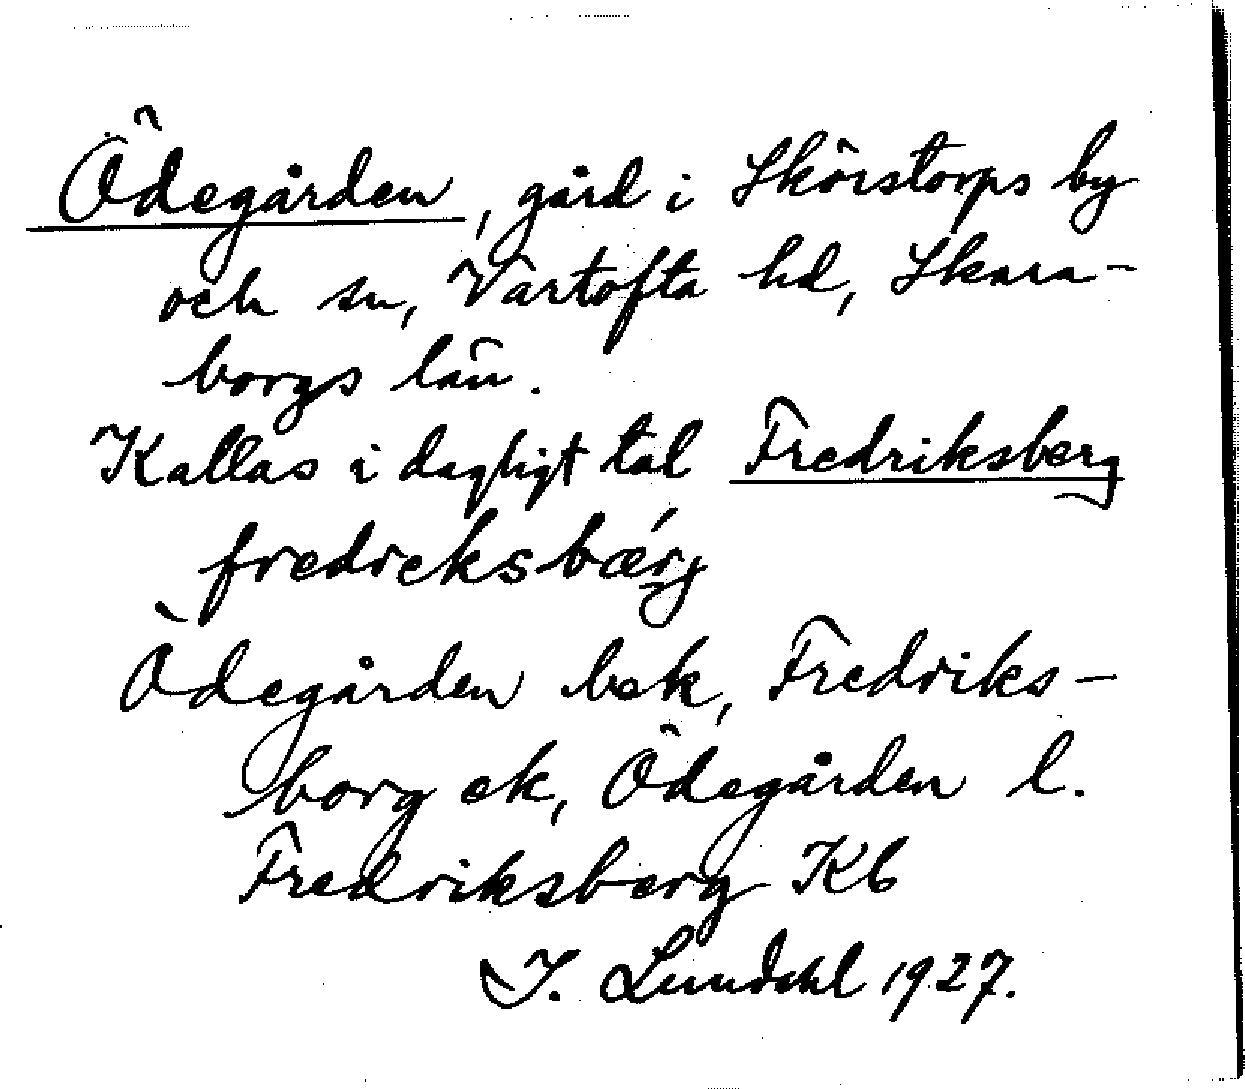 Ödegården, gård i Skörstorps by
och sn, Vartofta hd, Skara-
borgs län.
Kallas i dagligt tal Fredriksberg
fredreksbærj
Ödegården bek, Fredriks-
borg ek, Ödegården l.
Fredriksberg Kb
I. Lundahl 1927.